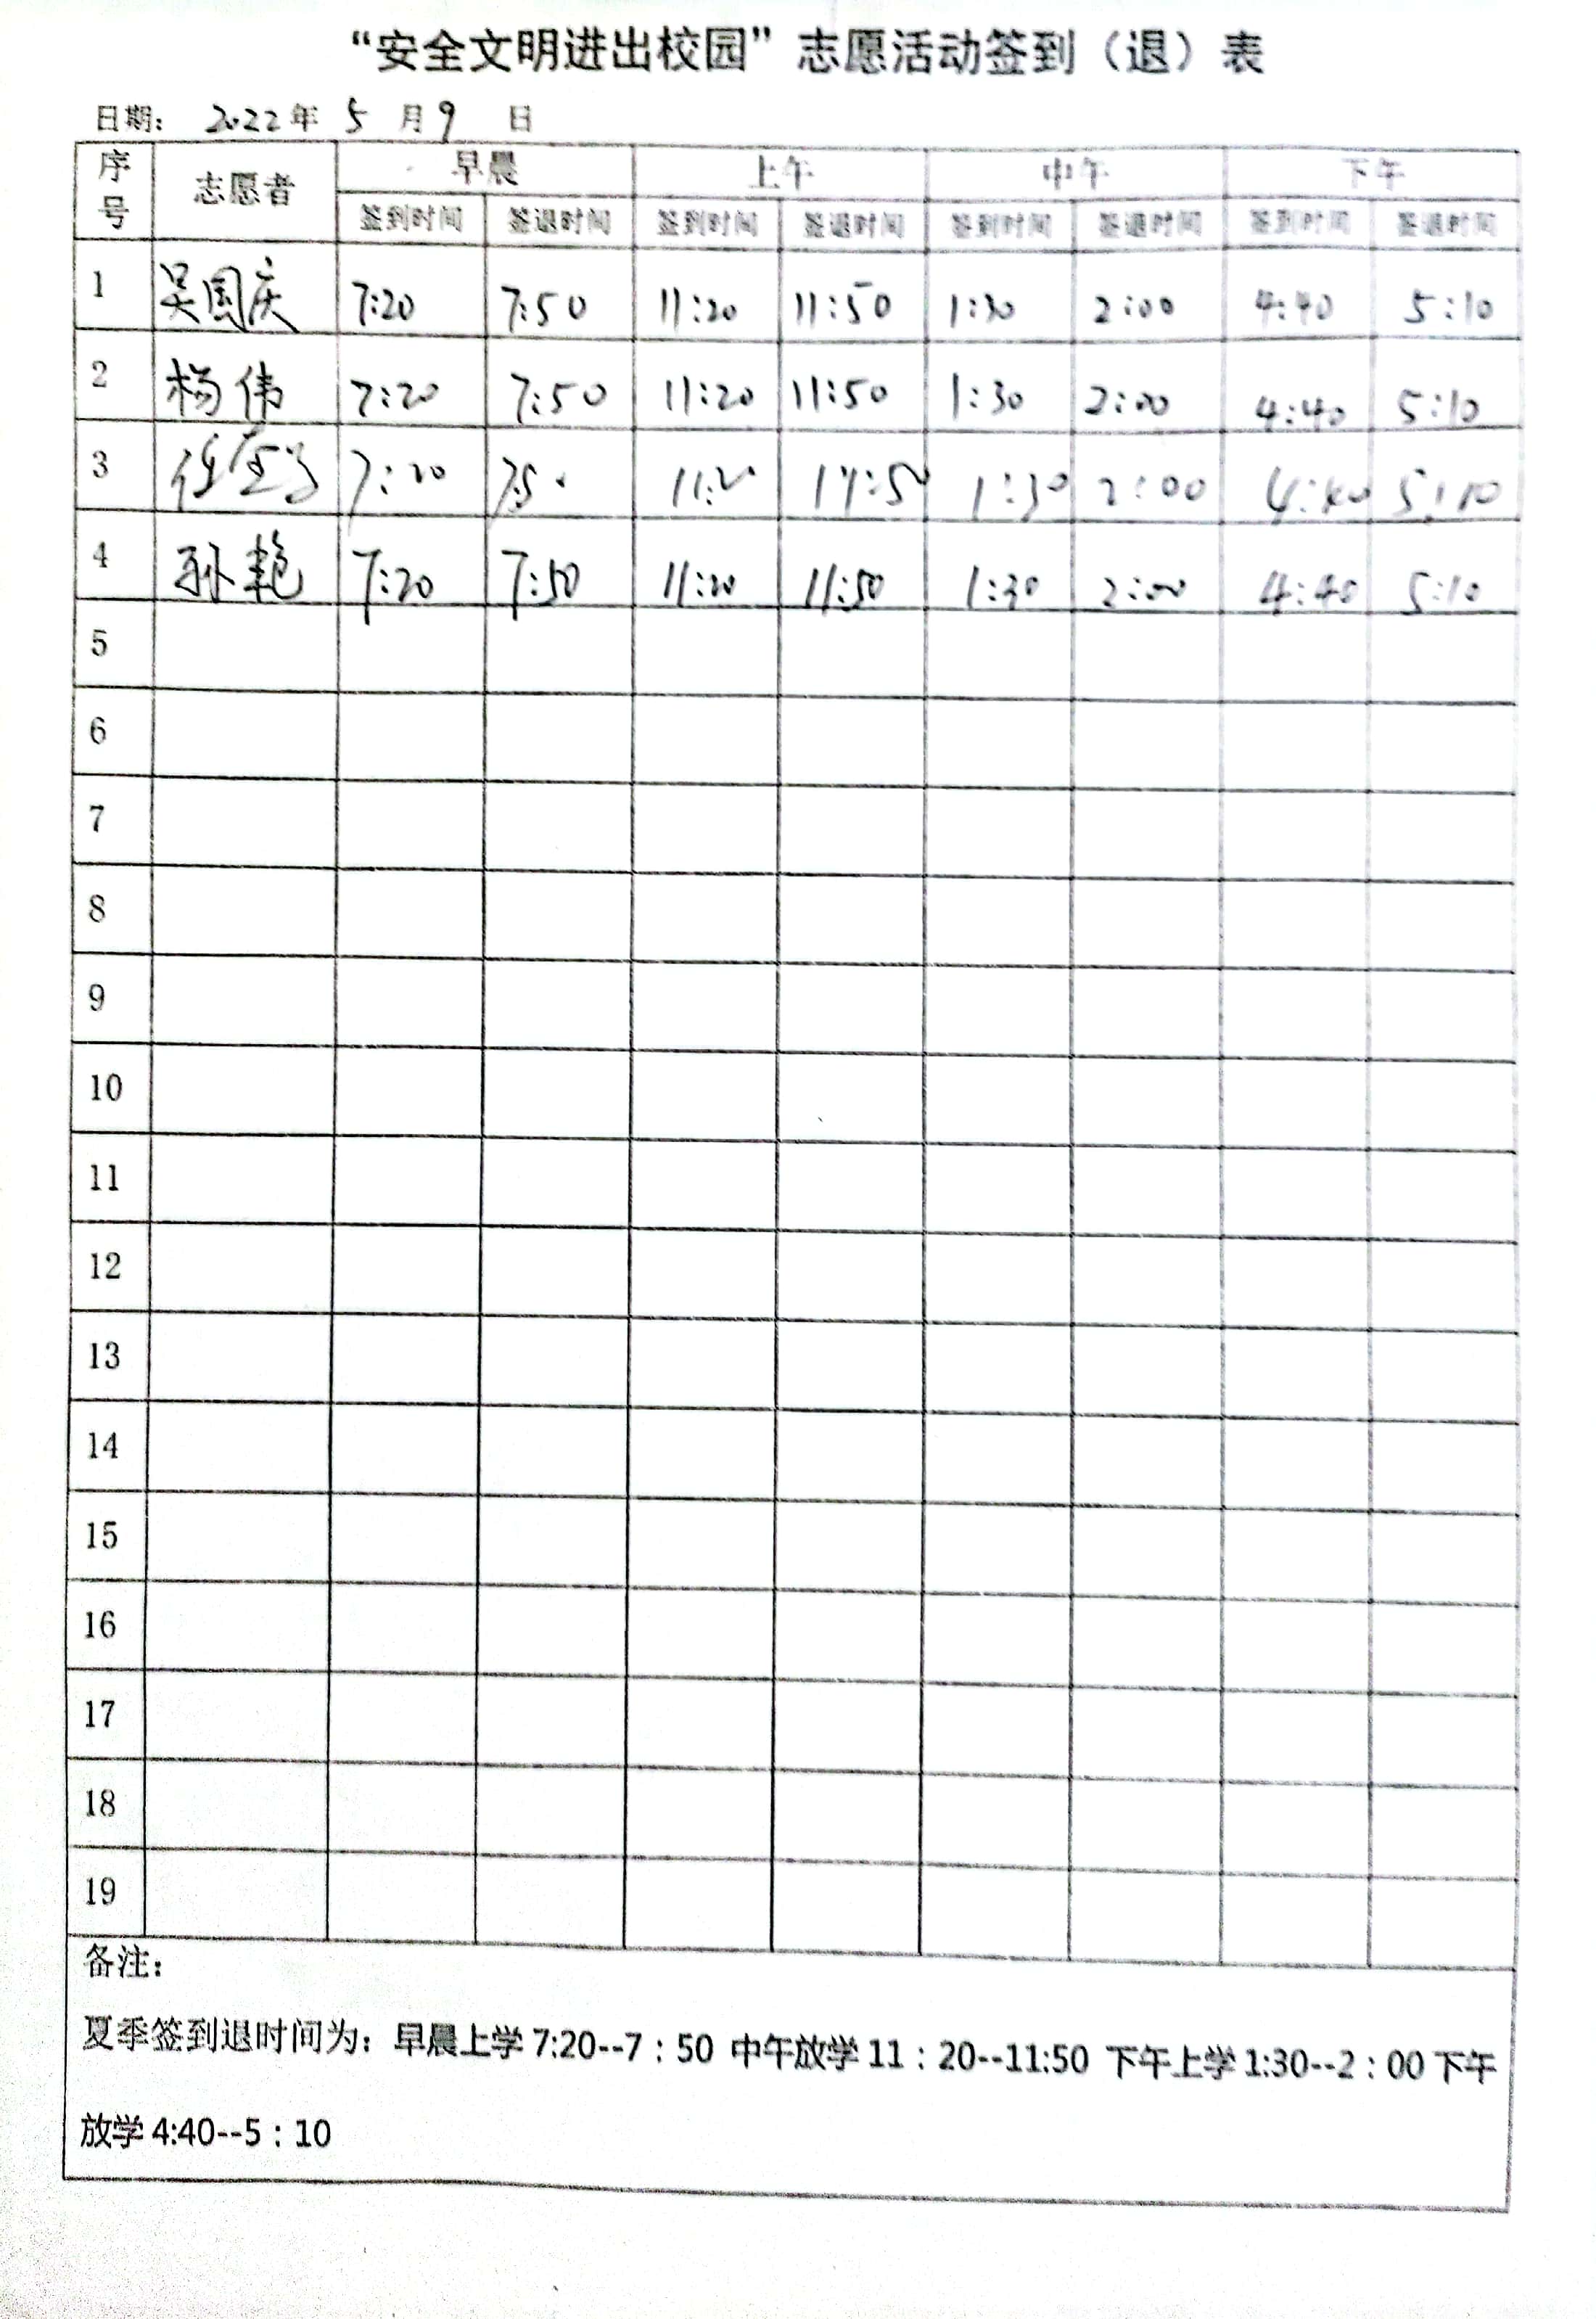 “安全文明进出校园”志愿活动签到（退）表
日期： 2022年 5 月 9 日
序号 志愿者 早晨 上午 中午 下午
签到时间 签退时间 签到时间 签退时间 签到时间 签退时间 签到时间 签退时间
1 吴国庆 7:20 7:50 11:20 11:50 1:30 2:00 4:40 5:10
2 杨伟 7:20 7:50 11:20 11:50 1:30 2:00 4:40 5:10
3 7:20 1:30 2:00 4:40 5:10
4 孙艳 7:20 7:50 11:20 11:50 1:30 2:00 4:40 5:10
5
6
7
8
9
10
11
12
13
14
15
16
17
18
19
备注：
夏季签到退时间为：早晨上学 7:20--7：50 中午放学 11：20--11:50 下午上学 1:30--2：00 下午
放学 4:40--5：10